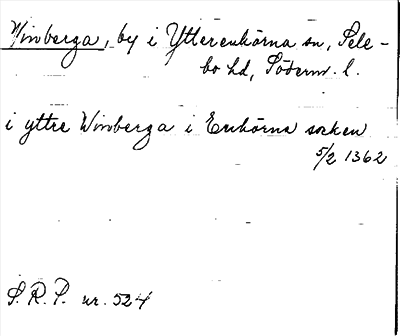 Winberga, by i Ytterenhörna sn, Sele-
bo hd, Söderm. l.
i yttre Winberga i Enhörna socken
5/2 1362
S. R. P. nr. 524